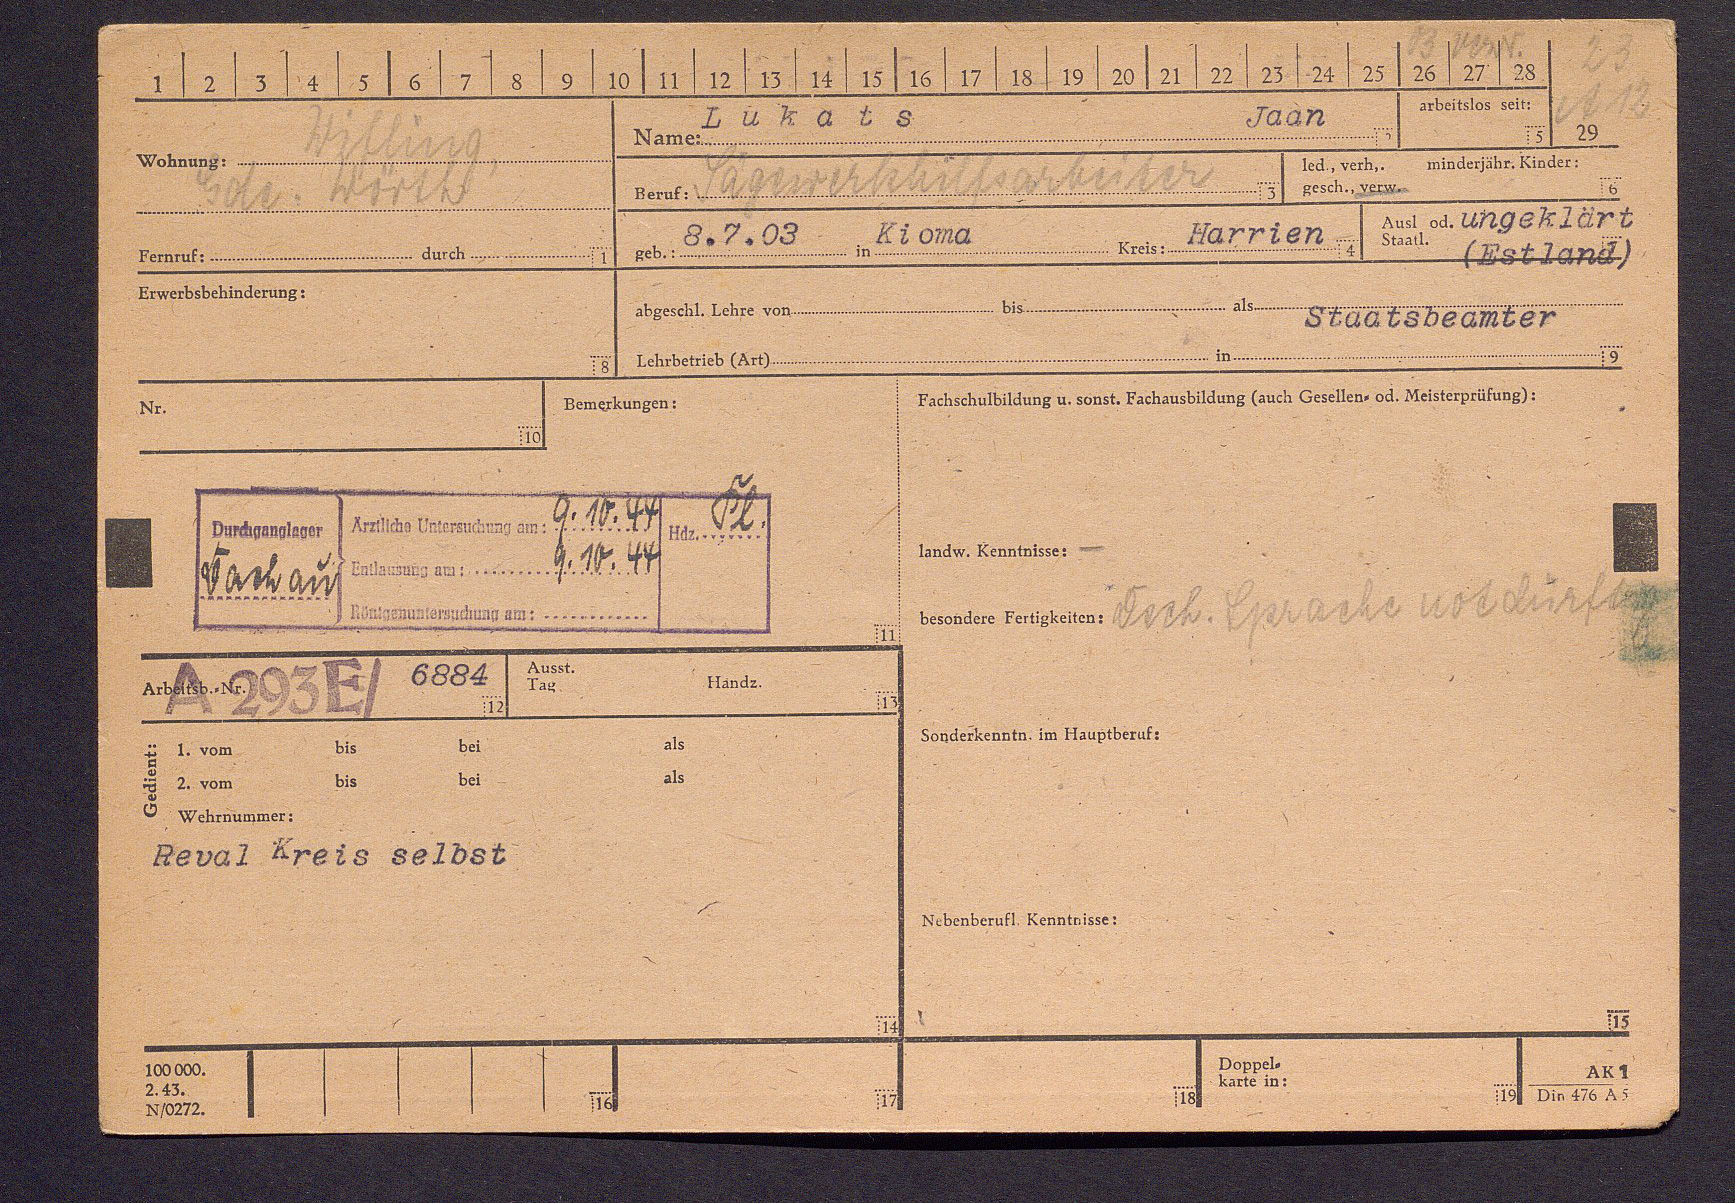 B verz. 23
1 2 3 4 5 6 7 8 9 10 11 12 13 14 15 16 17 18 19 20 21 22 23 24 25 26 27 28
A 12.
29
Wohnung: Wifling,
Gde. Wörth
Name: Lukats Jaan
arbeitslos seit: 5
Beruf: Sägewerkhilfsarbeiter 3
led., verh,. minderjähr. Kinder:
gesch., verw. 6
Fernruf: durch 1
geb.: 8.7.03 in Kioma Kreis: Harrien 4
Ausl od. ungeklärt
Staatl. (Estland)
Erwerbsbehinderung:
8
abgeschl. Lehre von bis als
Staatsbeamter
Lehrbetrieb (Art) in 9
Nr.
10
Bemerkungen:
Durchganglager
Dachau
Ärztliche Untersuchung am: 9.10.44
Entlausung am: 9.10.44
Röntgenuntersuchung am:
Hdz. Pl.
11
Fachschulbildung u. sonst. Fachausbildung (auch Gesellen- od. Meisterprüfung):
landw. Kenntnisse: —
besondere Fertigkeiten: Dtsch. Sprache notdürftig
Arbeitsb.-Nr. A 293E/ 6884
12
Ausst.
Tag Handz.
13
Sonderkenntn. im Hauptberuf:
Gedient:
1. vom bis bei als
2. vom bis bei als
Wehrnummer:
Reval Kreis selbst
14
Nebenberufl. Kenntnisse:
15
100 000.
2. 43.
N/0272.
16
17
18
Doppel-
karte in:
19
AK 1
Din 476 A 5